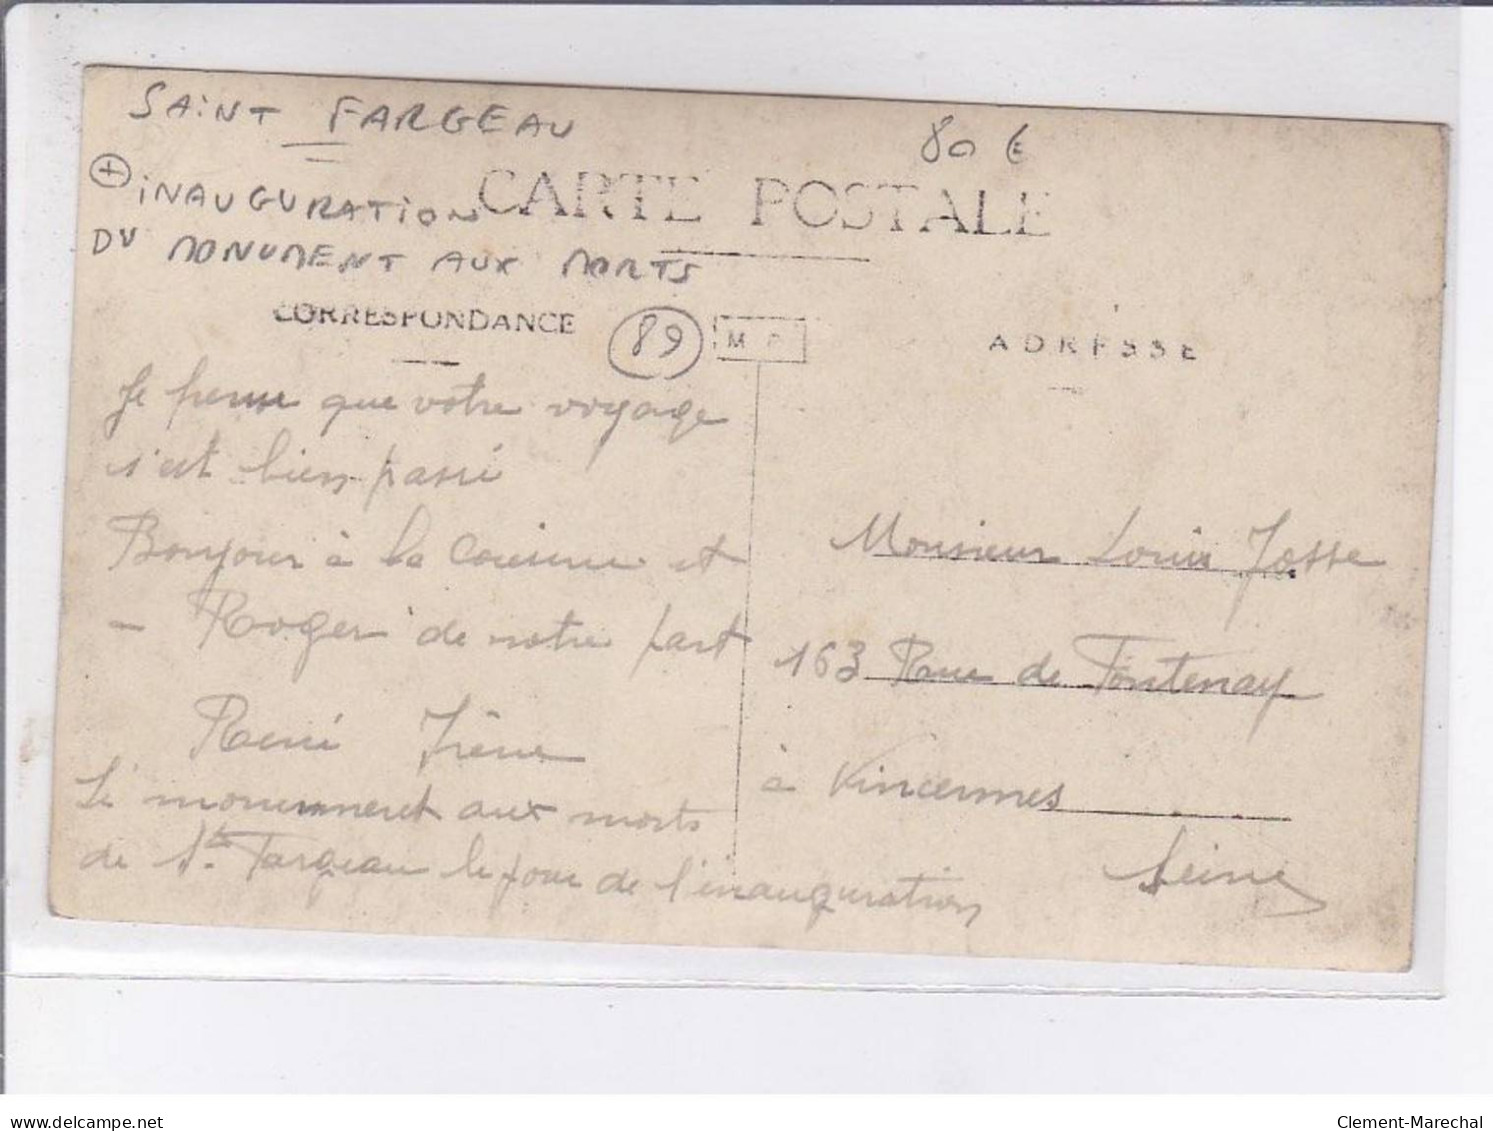 SAINT FARGEAU
80 €
+ INAUGURATION
DU MONUMENT AUX MORTS
CARTE POSTALE
CORRESPONDANCE
89
ADRESSE
Je pense que votre voyage
s'est bien passé
Bonjour à la Cousine et
- Roger de notre part
René Irène
Le monument aux morts
de St Fargeau le jour de l'inauguration
Monsieur Louis Josse
163 Rue de Fontenay
à Vincennes
Seine
delcampe.net
Clement-Marechal